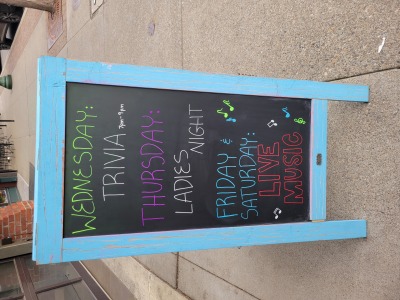 WEDNESDAY:
TRIVIA 7pm-9pm
THURSDAY:
LADIES
NIGHT
FRIDAY &
SATURDAY:
LIVE
MUSIC